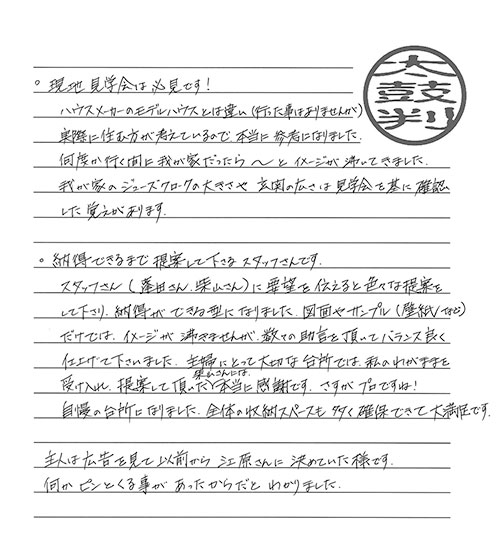 太鼓判
。現地見学会は必見です！
ハウスメーカーのモデルハウスとは違い（行った事はありませんが）
実際に住む方が考えているので、本当に参考になりました。
何度か行く間に我が家だったら〜とイメージが沸いてきました。
我が家のシューズクロークの大きさや玄関の広さは見学会を基に確認
した覚えがあります。
。納得できるまで提案して下さるスタッフさんです。
スタッフさん（蓬田さん、柴山さん）に要望を伝えると色々な提案を
して下り、納得ができる型になりました。図面やサンプル（壁紙など）
だけでは、イメージが沸きませんが、数々の助言を頂いてバランス良く
仕上げて下さいました。主婦にとって大切な台所では、私のわがままを
受け入れ、提案して頂いた柴山さんには、本当に感謝です。さすがプロですね！
自慢の台所になりました。全体の収納スペースも多く確保できて大満足です。
主人は広告を見て以前から江原さんに決めていた様です。
何かピンとくる事があったからだとわかりました。